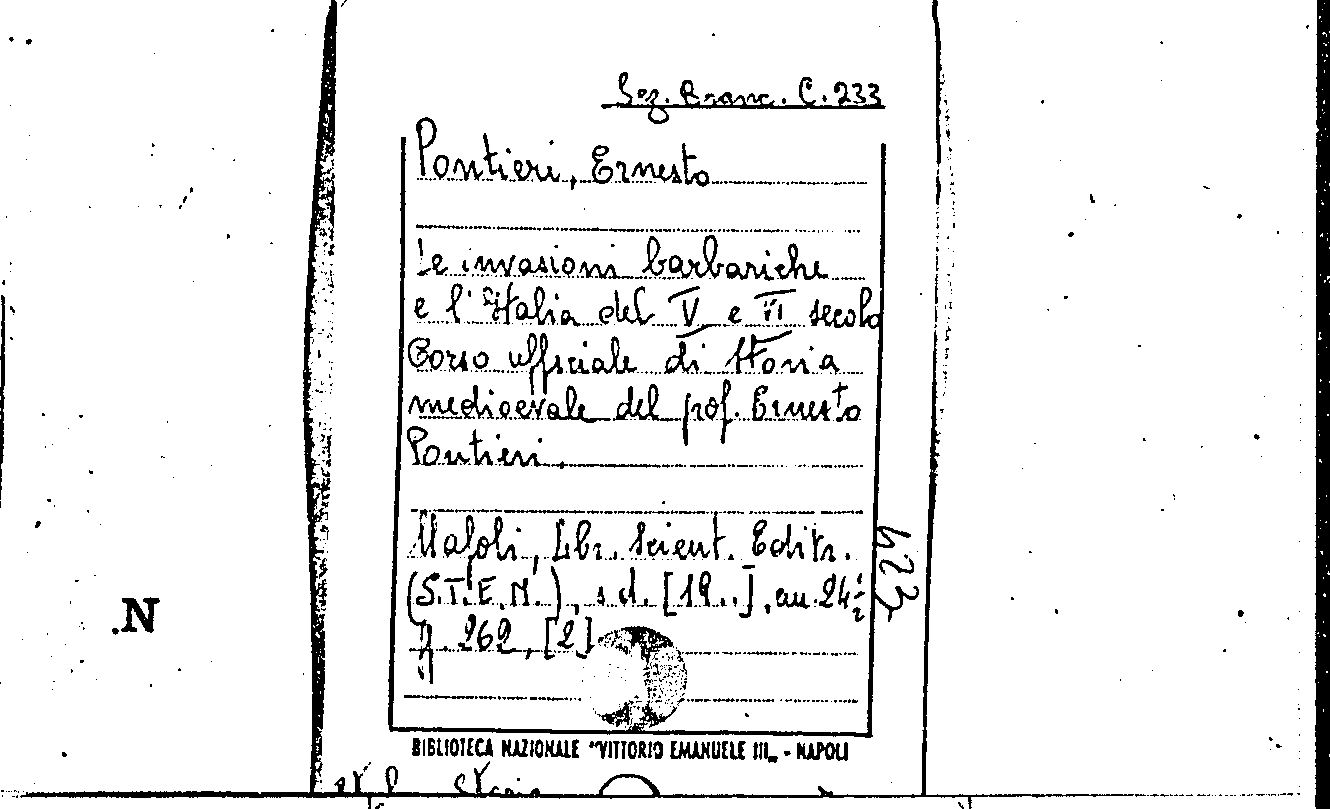 Sez. Branc. C. 233
Pontieri, Ernesto
Le invasioni barbariche
e l'Italia del V e VI secolo
Corso ufficiale di Storia
medioevale del prof. Ernesto
Pontieri.
Napoli, Libr. Scient. Editr.
(S.T.E.N.), s.d. [19..], cm. 24½
pp. 262, [2]
423
.N
BIBLIOTECA NAZIONALE "VITTORIO EMANUELE III„ - NAPOLI